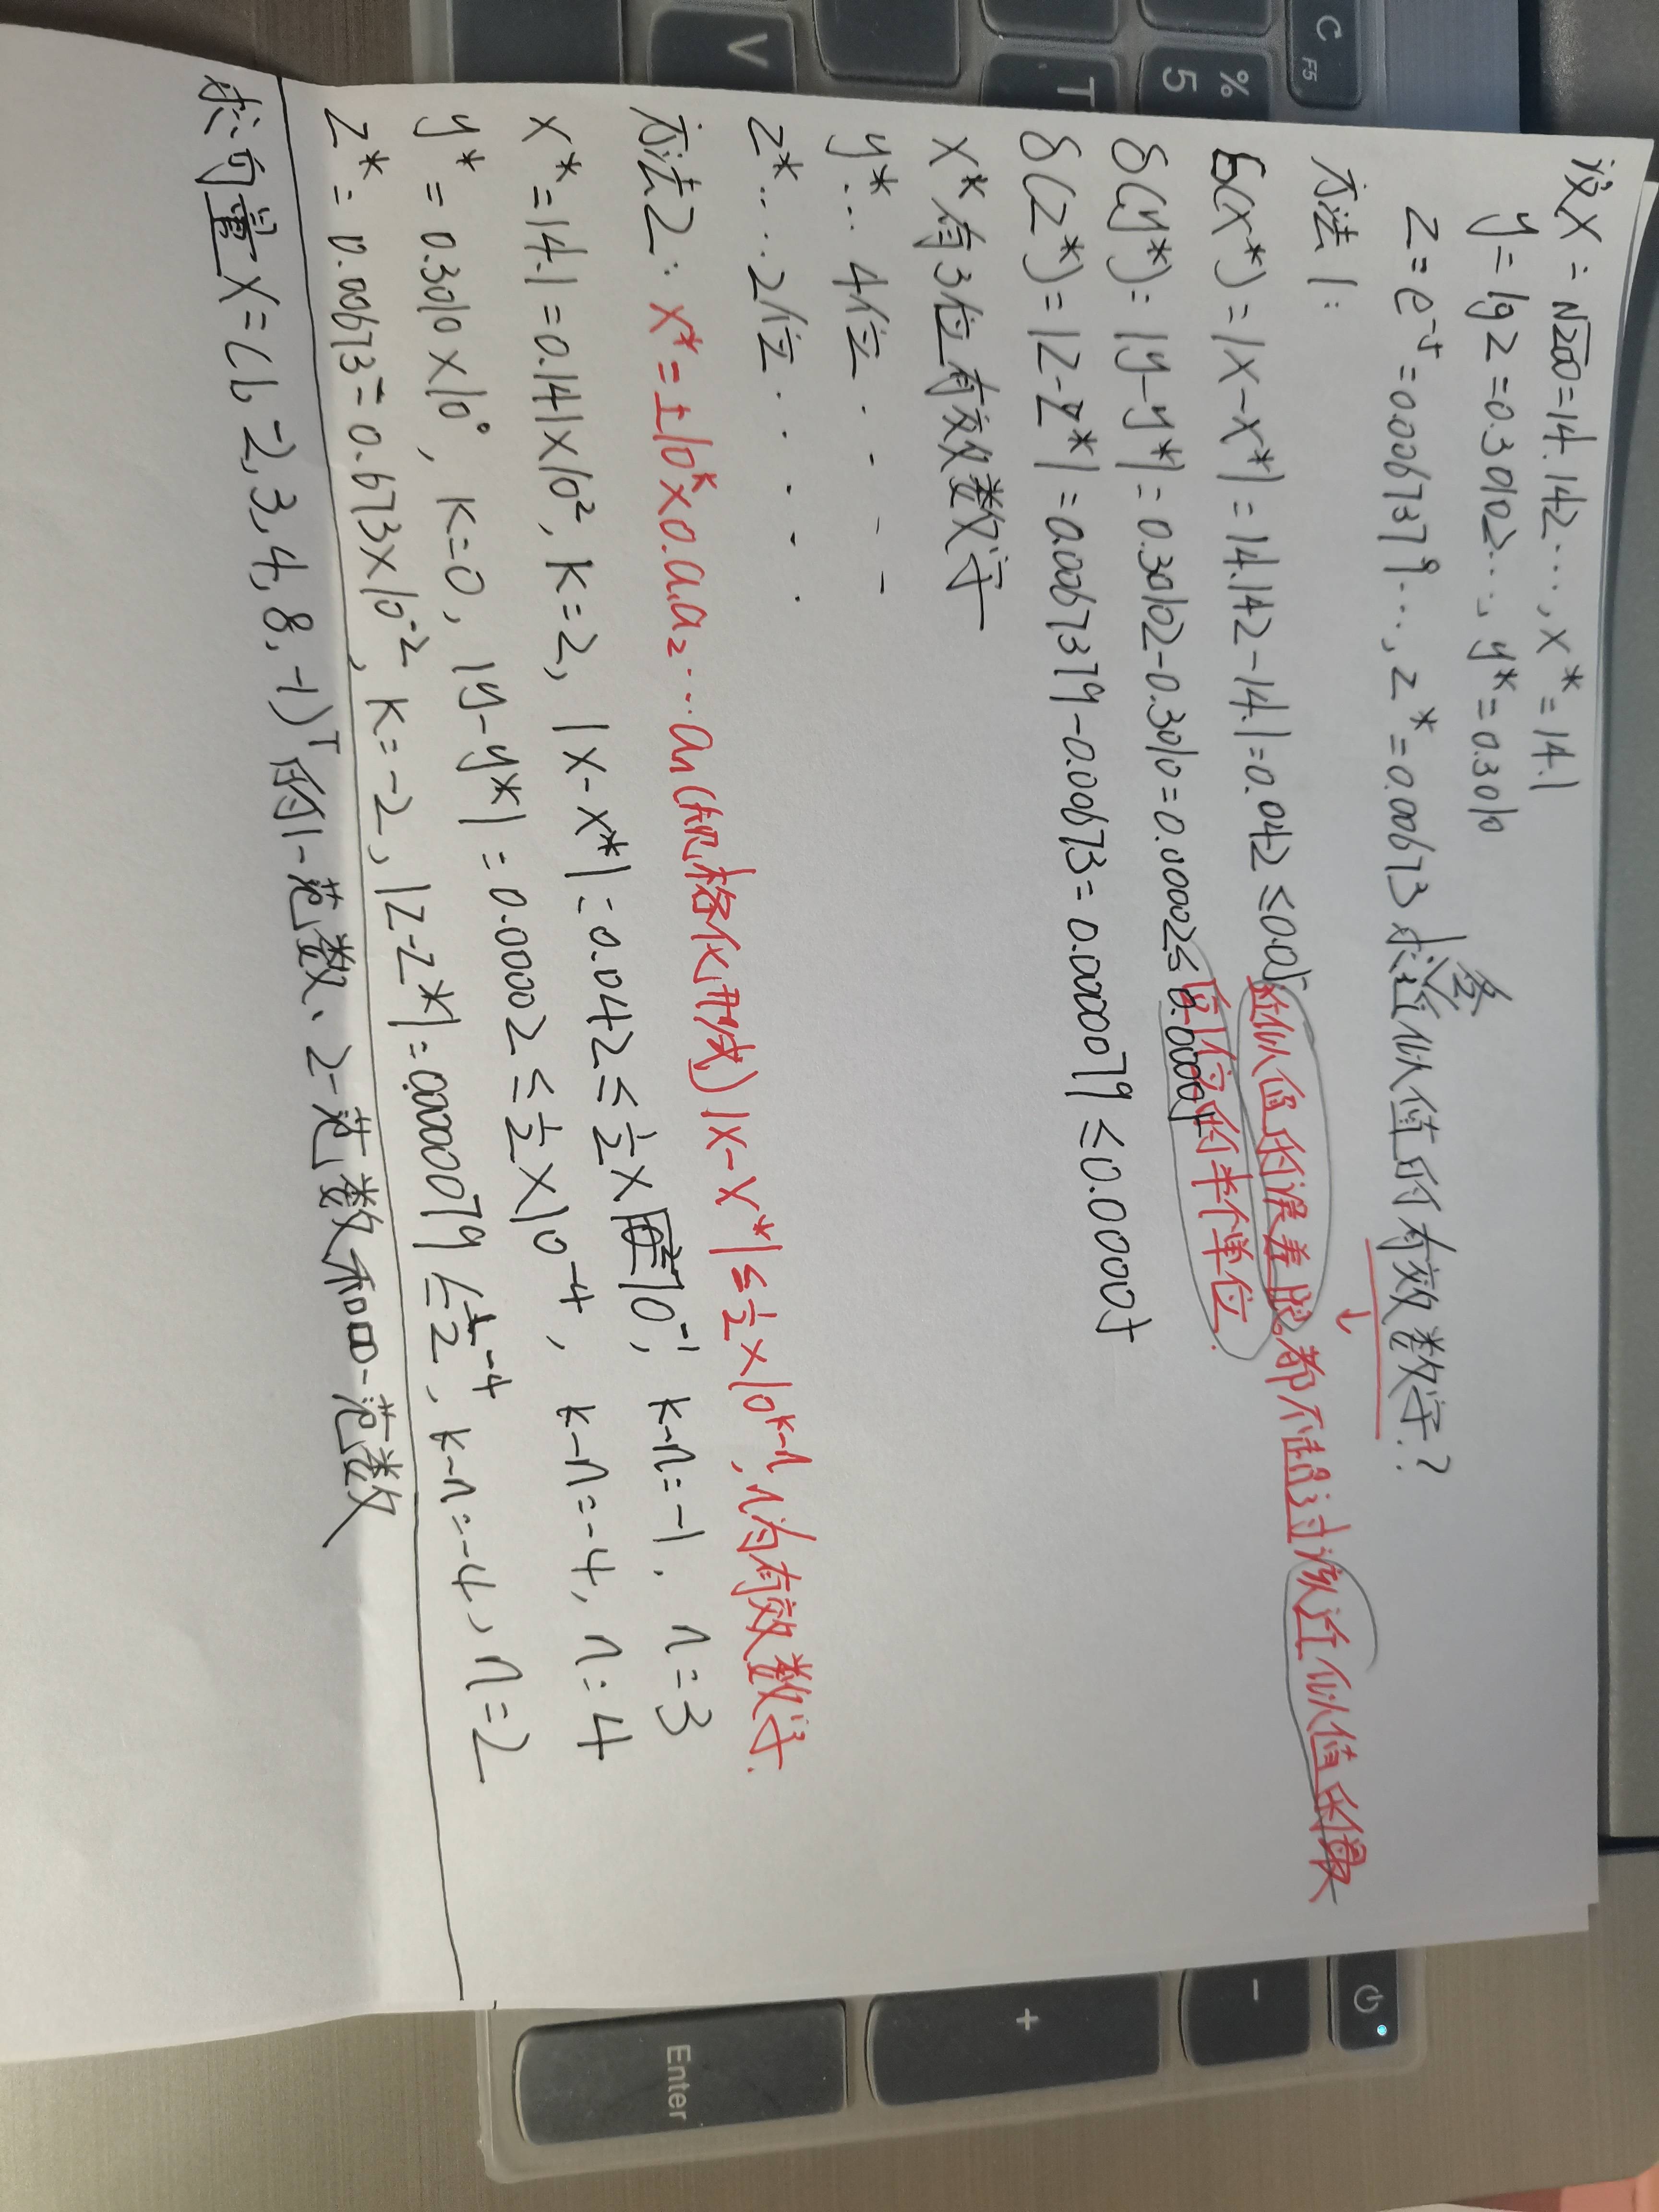 设X=√200=14.142…, x*=14.1
y=lg2=0.30102…, y*=0.3010
z=e⁻⁵=0.0067379…, z*=0.00673 求近似值的有效数字?
各
方法1:
近似值的误差限都不超过该近似值末位的半个单位.
δ(x*)=|x-x*|=14.142-14.1=0.042≤0.05
δ(y*)=|y-y*|=0.30102-0.3010=0.00002≤0.00005
δ(z*)=|z-z*|=0.0067379-0.00673=0.0000079≤0.00005
x*有3位有效数字
y*…4位…
z*…2位…
方法2: x*=±10ᵏ×0.a₁a₂…aₙ(规格化形式)|x-x*|≤½×10ᵏ⁻ⁿ, n为有效数字.
x*=14.1=0.141×10², k=2, |x-x*|=0.042≤½×10⁻¹, k-n=-1, n=3
y*=0.3010×10⁰, k=0, |y-y*|=0.00002≤½×10⁻⁴, k-n=-4, n=4
z*=0.00673=0.673×10⁻², k=-2, |z-z*|=0.0000079≤½⁻⁴, k-n=-4, n=2
求向量X=(1,-2,3,4,8,-1)ᵀ的1-范数、2-范数和∞-范数
C
F5
%
5
T
V
-
+
Enter